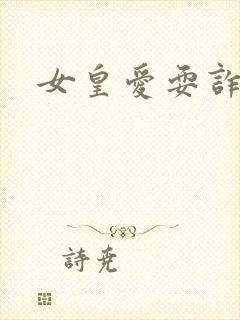 女皇愛耍詐
詩堯